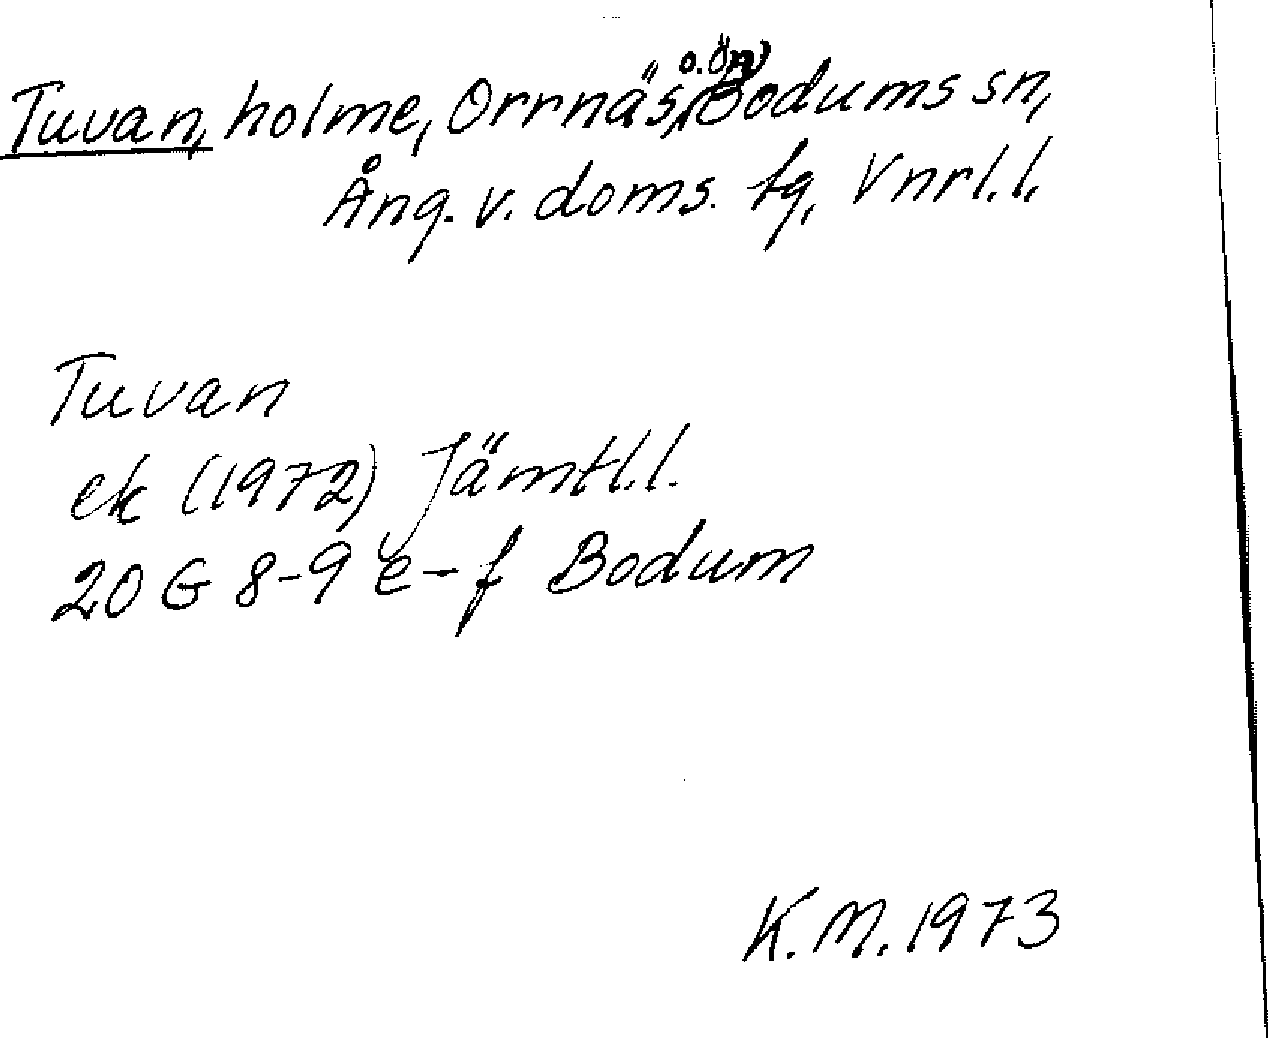 Tuvan, holme, Orrnäs, o. Ön, Bodums sn,
Ång. v. doms. tg, Vnrl. l.
Tuvan
ek (1972) Jämtl. l.
20 G 8-9 e-f Bodum
K. M. 1973